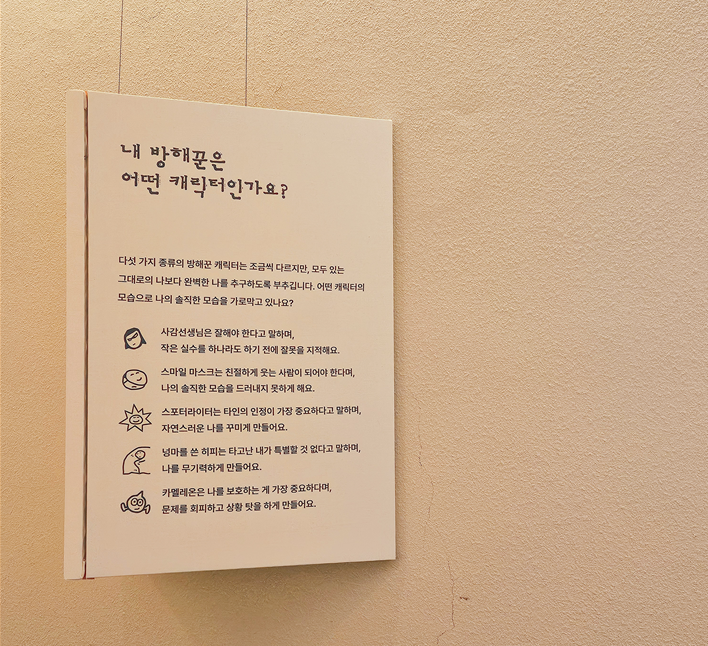 내 방해꾼은
어떤 캐릭터인가요?
다섯 가지 종류의 방해꾼 캐릭터는 조금씩 다르지만, 모두 있는
그대로의 나보다 완벽한 나를 추구하도록 부추깁니다. 어떤 캐릭터의
모습으로 나의 솔직한 모습을 가로막고 있나요?
사감선생님은 잘해야 한다고 말하며,
작은 실수를 하나라도 하기 전에 잘못을 지적해요.
스마일 마스크는 친절하게 웃는 사람이 되어야 한다며,
나의 솔직한 모습을 드러내지 못하게 해요.
스포터라이터는 타인의 인정이 가장 중요하다고 말하며,
자연스러운 나를 꾸미게 만들어요.
넝마를 쓴 히피는 타고난 내가 특별할 것 없다고 말하며,
나를 무기력하게 만들어요.
카멜레온은 나를 보호하는 게 가장 중요하다며,
문제를 회피하고 상황 탓을 하게 만들어요.